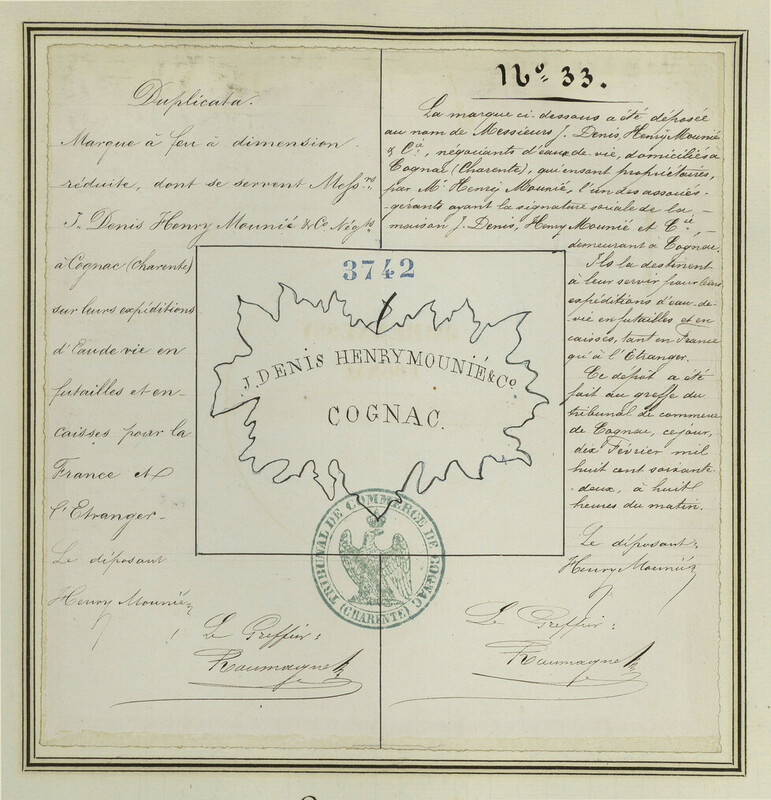 Duplicata.
Marque à feu à dimension
réduite, dont se servent Messrs.
J. Denis Henry Mounié & Co Négts
à Cognac (Charente)
sur leurs expéditions
d'Eau de vie en
futailles et en-
caisses pour la
France et
l'Etranger-
Le déposant
Henry Mounié
Le Greffier:
Roumagne
No. 33.
La marque ci-dessous a été déposée
au nom de Messieurs J. Denis, Henry Mounié
& Cie, négociants d'eaux de vie, domiciliés à
Cognac (Charente), qui en sont propriétaires,
par Mr. Henry Mounié, l'un des associés-
gérants ayant la signature sociale de la
maison J. Denis, Henry Mounié et Cie,
demeurant à Cognac.
Ils la destinent
à leur servir pour leurs
expéditions d'eau-de-
vie en futailles et en
caisses, tant en France
qu'à l'Etranger.
Ce dépôt a été
fait au greffe du
tribunal de commerce
de Cognac, ce jour,
dix Février mil
huit cent soixante-
deux, à huit
heures du matin.
Le déposant:
Henry Mounié
Le Greffier:
Roumagne
3742
J. DENIS HENRY MOUNIÉ & Co.
COGNAC.
TRIBUNAL DE COMMERCE DE COGNAC
(CHARENTE)